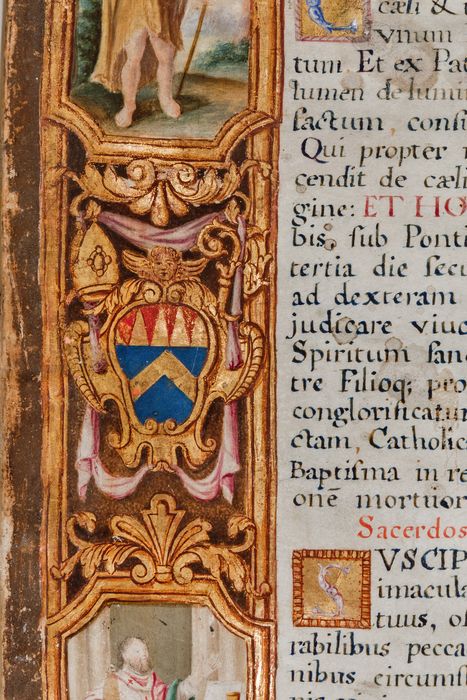 cæli &
vnum
tum. Et ex Pat
lumen de lumi
factum, consu
Qui propter
cendit de cæli
gine: ET HO
bis, sub Ponti
tertia die secu
ad dexteram
judicare viuo
Spiritum san
tre Filioq; pro
conglorificatur
ctam, Catholic
Baptisma in re
onē mortuor
Sacerdos
SVSCIP
imacula
tuus, of
rabilibus pecca
nibus circums